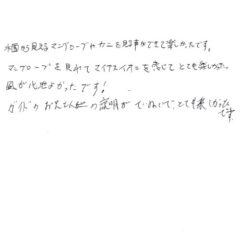 水面から見えるマングローブやカニを見る事ができて楽しかったです。
マングローブを見れてマイナスイオンを感じてとても楽しかった。
風が心地よかったです!
ガイドのお兄さんの説明がていねいで、とても楽しかった
です。